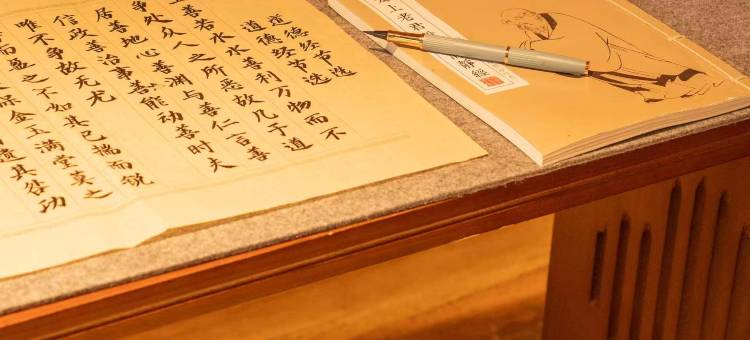 道德经节选
道德经节选
上善若水水善利万物而不
争处众人之所恶故几于道
居善地心善渊与善仁言善
信政善治事善能动善时夫
唯不争故无尤
而盈之不如其已揣而锐
保金玉满堂莫之
遗其咎功
上老君
静經